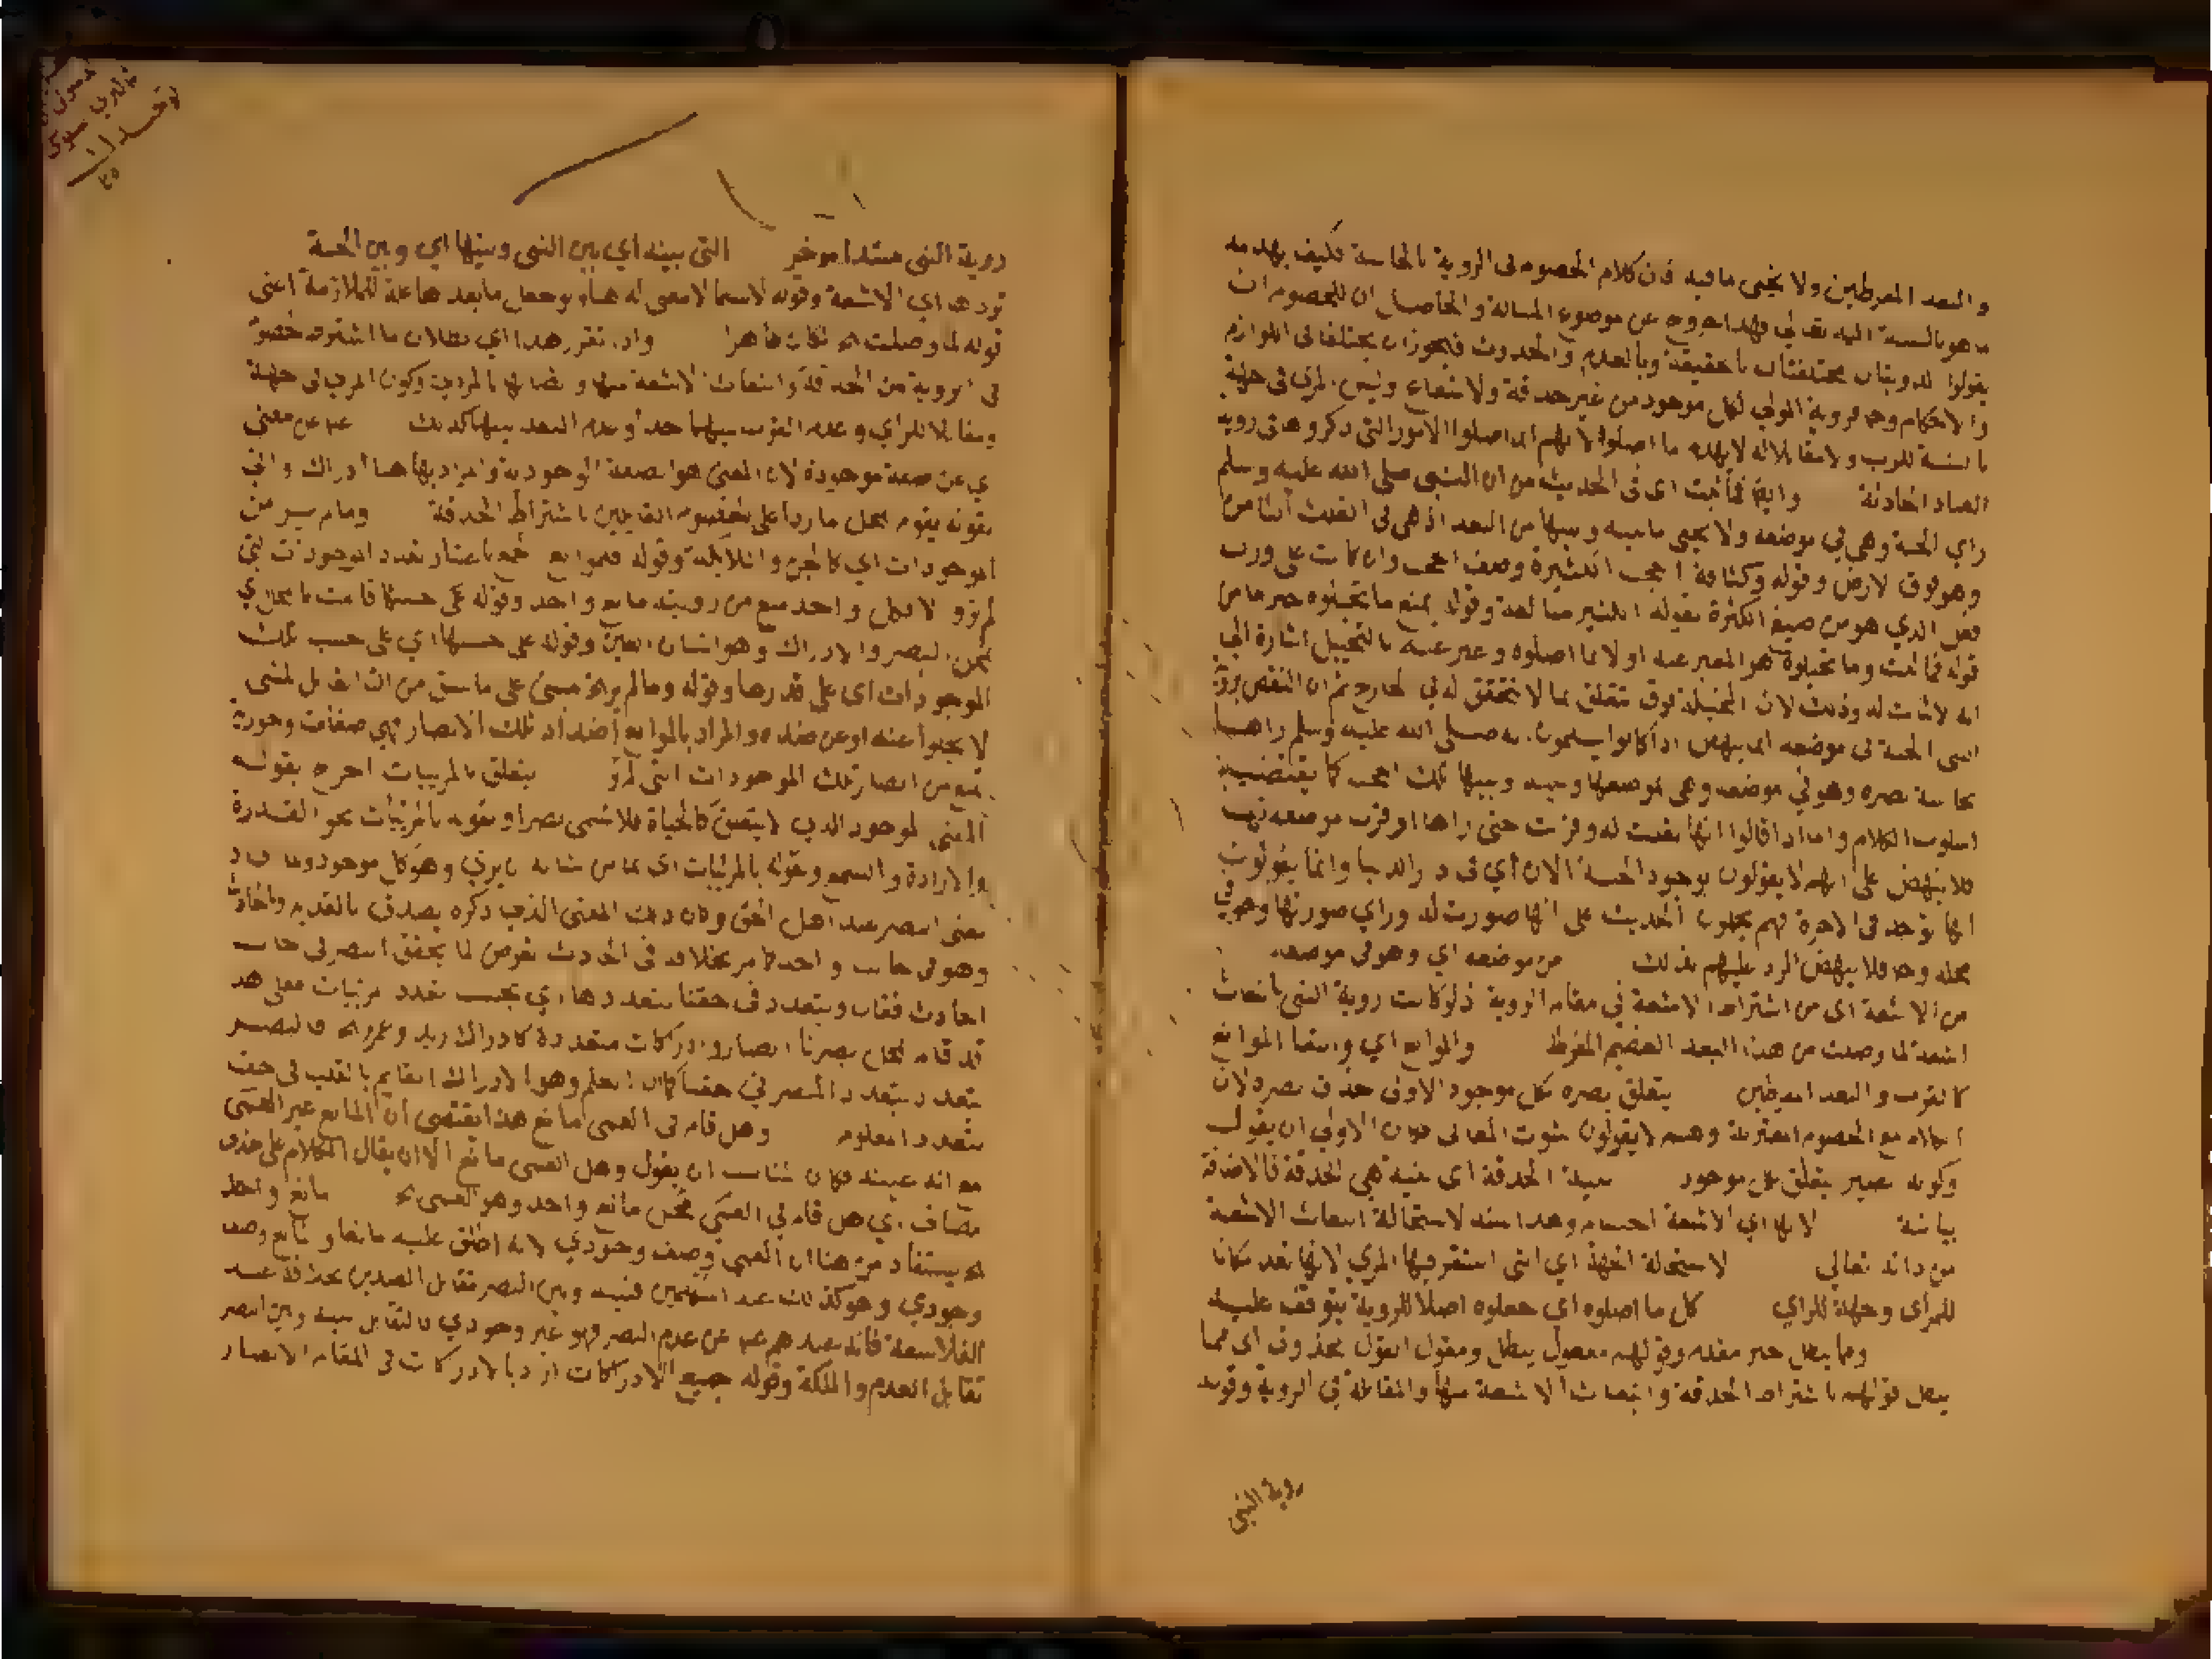 والبعد المفرطين ولا يخفى ما فيه فان كلام الخصوم في الروية بالحاسة فكيف يهدمه
ما هو بالنسبة اليه تعالى فهذا خروج عن موضوع المسالة والحاصل ان للخصوم ان
يقولوا الرويتان مختلفتان بالحقيقة وبالقدم والحدوث فيجوز ان يختلفا في اللوازم
والاحكام وح فروية المولى لكل موجود من غير حدقة ولا شعاع وليس المرى في جهة
بالنسبة للرب ولا مقابلا له لا يهدم ما اصلوا لانهم انما اصلوا الامور التي ذكروها في روية
العباد الحادثة وايضا فما ثبت اى فى الحديث من ان النبى صلى الله عليه وسلم
راي الجنة وهي في موضعه ولا يخفى ما بينه وبينها من البعد اذ هي في
وهو فوق الارض وقوله وكثافة الحجب الكثيرة وصف الحجب وان كانت على وزن
فعل الذي هو من صيغ الكثرة بقوله الكثيرة مبالغة وقوله يمنع ما تخيلوه خبر ما من
قوله فما ثبت وما تخيلوه هو المعبر عنه اولا بما اصلوه وعبر عنه بالتخييل اشارة الى
انه لا ثبات له وذلك لان المخيلة قوة تتعلق بما لا تحقق له في الخارج ثم ان النقض بروية
النبى الجنة فى موضعه انما ينهض اذا كانوا يسلمون انه صلى الله عليه وسلم راها
بحاسة بصره وهو في موضعه وهي بموضعها وبينه وبينها تلك الحجب كما يقتضيه
اسلوب الكلام واما اذا قالوا انها نقلت له وقربت حتى راها او قرب موضعه
فلا ينهض على انهم لا يقولون بوجود الجنة الان أي فى دار الدنيا وانما يقولون
انها توجد فى الاخرة فهم يحملون الحديث على انها صورت له وراي صورتها وهو في
محله وح فلا ينهض الرد عليهم بذلك من موضعه اي وهو في موضعه
من الاشعة اى من اشتراط الاشعة في مقام الروية اذ لو كانت روية النبى بانبعاث
اشعة لما وصلت من هذا البعد العظيم المفرط والموانع اي وانتفا الموانع
كالقرب والبعد المفرطين يتعلق بصره بكل موجود الاولى حذف بصره لان
الكلام مع الخصوم المعتزلة وهم لا يقولون بثبوت المعانى فكان الاولى ان يقول
وكونه بصير يتعلق بكل موجود بنية الحدقة اى بنية هي الحدقة فالاضافة
بيانية لانها اي الاشعة اجسام وهذا سند لاستحالة انبعاث الاشعة
من ذاته تعالى لاستحالة الجهة اي التى استقر فيها المرى لانها تعد مكانا
للمرأى وجهة للراي كل ما اصلوه اى جعلوه اصلا للروية يتوقف عليه
ومما يبطل خبر مقدم وقولهم مفعول يبطل ومقول القول محذوف اى مما
يبطل قولهم باشتراط الحدقة وانبعاث الاشعة منها والمقابلة في الروية وقوله
روية النبى
روية النبى مبتدا موخر التى بينه اي بين النبى وبينها اي وبين الجنة
قوله لما وصلت الخ لكان ظاهرا واذ تقرر هذا اي بطلان ما اشترطه الخصوم
فى الروية من الحدقة وانبعاث الاشعة منها واتصالها بالمرى وكون المرى فى جهة
ومقابلا للراي وعدم القرب بينهما جدا وعدم البعد بينهما كذلك عبر عن معنى
اي عن صفة موجودة لان المعنى هو الصفة الوجودية والمراد بها هنا الادراك
بقوله يقوم بمحل ما ردا على الخصوم القايلين باشتراط الحدقة وما لم ير من
الموجودات اي كالجن والملايكة وقوله فلموانع جمع باعتبار تعدد الموجودات التى
لم تر والا فكل واحد منع من رويته مانع واحد وقوله على حسبها قامت بالمحل اي
محل البصر والادراك وهو انسان العين وقوله على حسبها اي على حسب تلك
الموجودات اى على قدرها وقوله وما لم ير الخ مبنى على ما سبق من ان القابل للشى
لا يخلوا عنه او عن ضده والمراد بالموانع اضداد تلك الابصار فهي صفات وجودية
تمنع من ابصار تلك الموجودات التى لم تر يتعلق بالمرييات اخرج بقوله
المعنى الموجود الذي لا يتعلق كالحياة فلا تسمى بصرا وبقوله بالمرئيات نحو القدرة
والارادة والسمع وقوله بالمرئيات اى بما من شانه ان يرى وهو كل موجود
معنى البصر عند اهل الحق وكان ذلك المعنى الذي ذكره يصدق بالقديم والحادث
وهو فى جانب واحد كما مر بخلافه فى الحادث تعرض لما يحقق البصر فى جانب
الحادث فقال ويتعدد فى حقنا بتعددها اي بحسب تعدد المرئيات فعلى هذا
قد قام بمحل بصرنا ابصار وادراكات متعددة كادراك زيد وعمرو الخ فالبصر
يتعدد بتعدد المبصر في حقنا كما ان العلم وهو الادراك القايم بالقلب فى حقنا
يتعدد بتعدد المعلوم وهل قام فى العمى مانع هذا يقتضى ان المانع غير العمى
مع انه عينه فكان المناسب ان يقول وهل العمى مانع الا ان يقال الكلام على حذف
مضاف اي هل قام في العمى محل مانع واحد وهو العمى الخ مانع واحد
الخ يستفاد من هنا ان العمى وصف وجودي لانه اطلق عليه مانعا والمانع وصف
وجودي وهو كذلك عند المتكلمين فبينه وبين البصر تقابل الضدين بخلافه عند
الفلاسفة فانه عندهم عبر عن عدم البصر فهو غير وجودي فالتقابل بينه وبين البصر
تقابل العدم والملكة وقوله جميع الادراكات اراد بالادراكات فى المقام الابصار